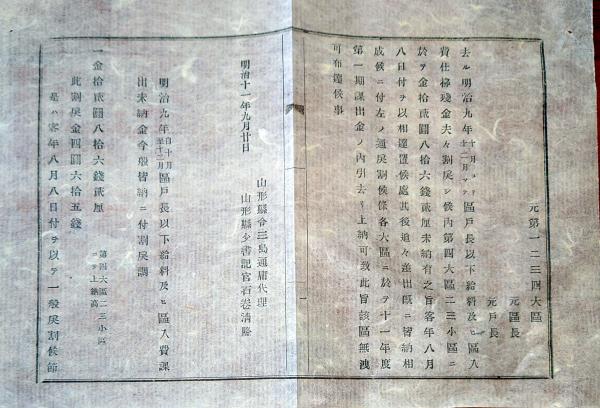 元第一二三四大區
元區長
元戸長
去ル明治九年十月ヨリ十二月マテ區戸長以下給料及ヒ區入
費仕拂殘金夫々割戻シ候内第四大區二三小區ニ
於テ金拾貳圓八拾六錢貳厘未納有之旨客年八月
八日付ヲ以相達置候處其後追々差出既ニ皆納相
成候ニ付左ノ通戻割候條各大區ニ於テ十一年度
第一期課出金ノ内引去リ上納可致此旨該區無洩
可布達候事
明治十一年九月廿日
山形縣令三島通庸代理
山形縣少書記官石卷清勝
明治九年自十月至十二月區戸長以下給料及ヒ區入費課
出未納金今般皆納ニ付割戻調
一金拾貳圓八拾六錢貳厘
第四大區二三小區ヨリ上納高
此割戻金四圓六拾五錢
是ハ客年八月八日付ヲ以テ一般戻割候節